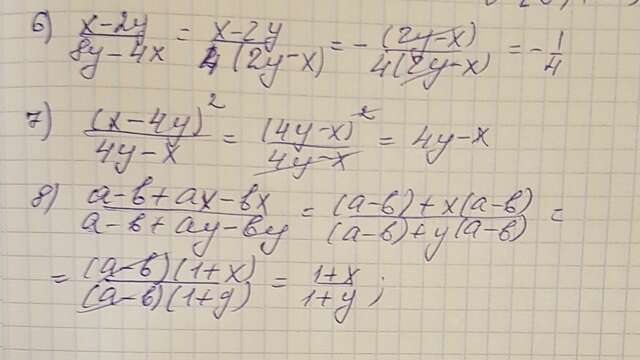 6) (x-2y)/(8y-4x) = (x-2y)/(4(2y-x)) = -(2y-x)/(4(2y-x)) = -1/4
7) (x-4y)²/(4y-x) = (4y-x)²/(4y-x) = 4y-x
8) (a-b+ax-bx)/(a-b+ay-by) = ((a-b)+x(a-b))/((a-b)+y(a-b)) =
= ((a-b)(1+x))/((a-b)(1+y)) = (1+x)/(1+y);